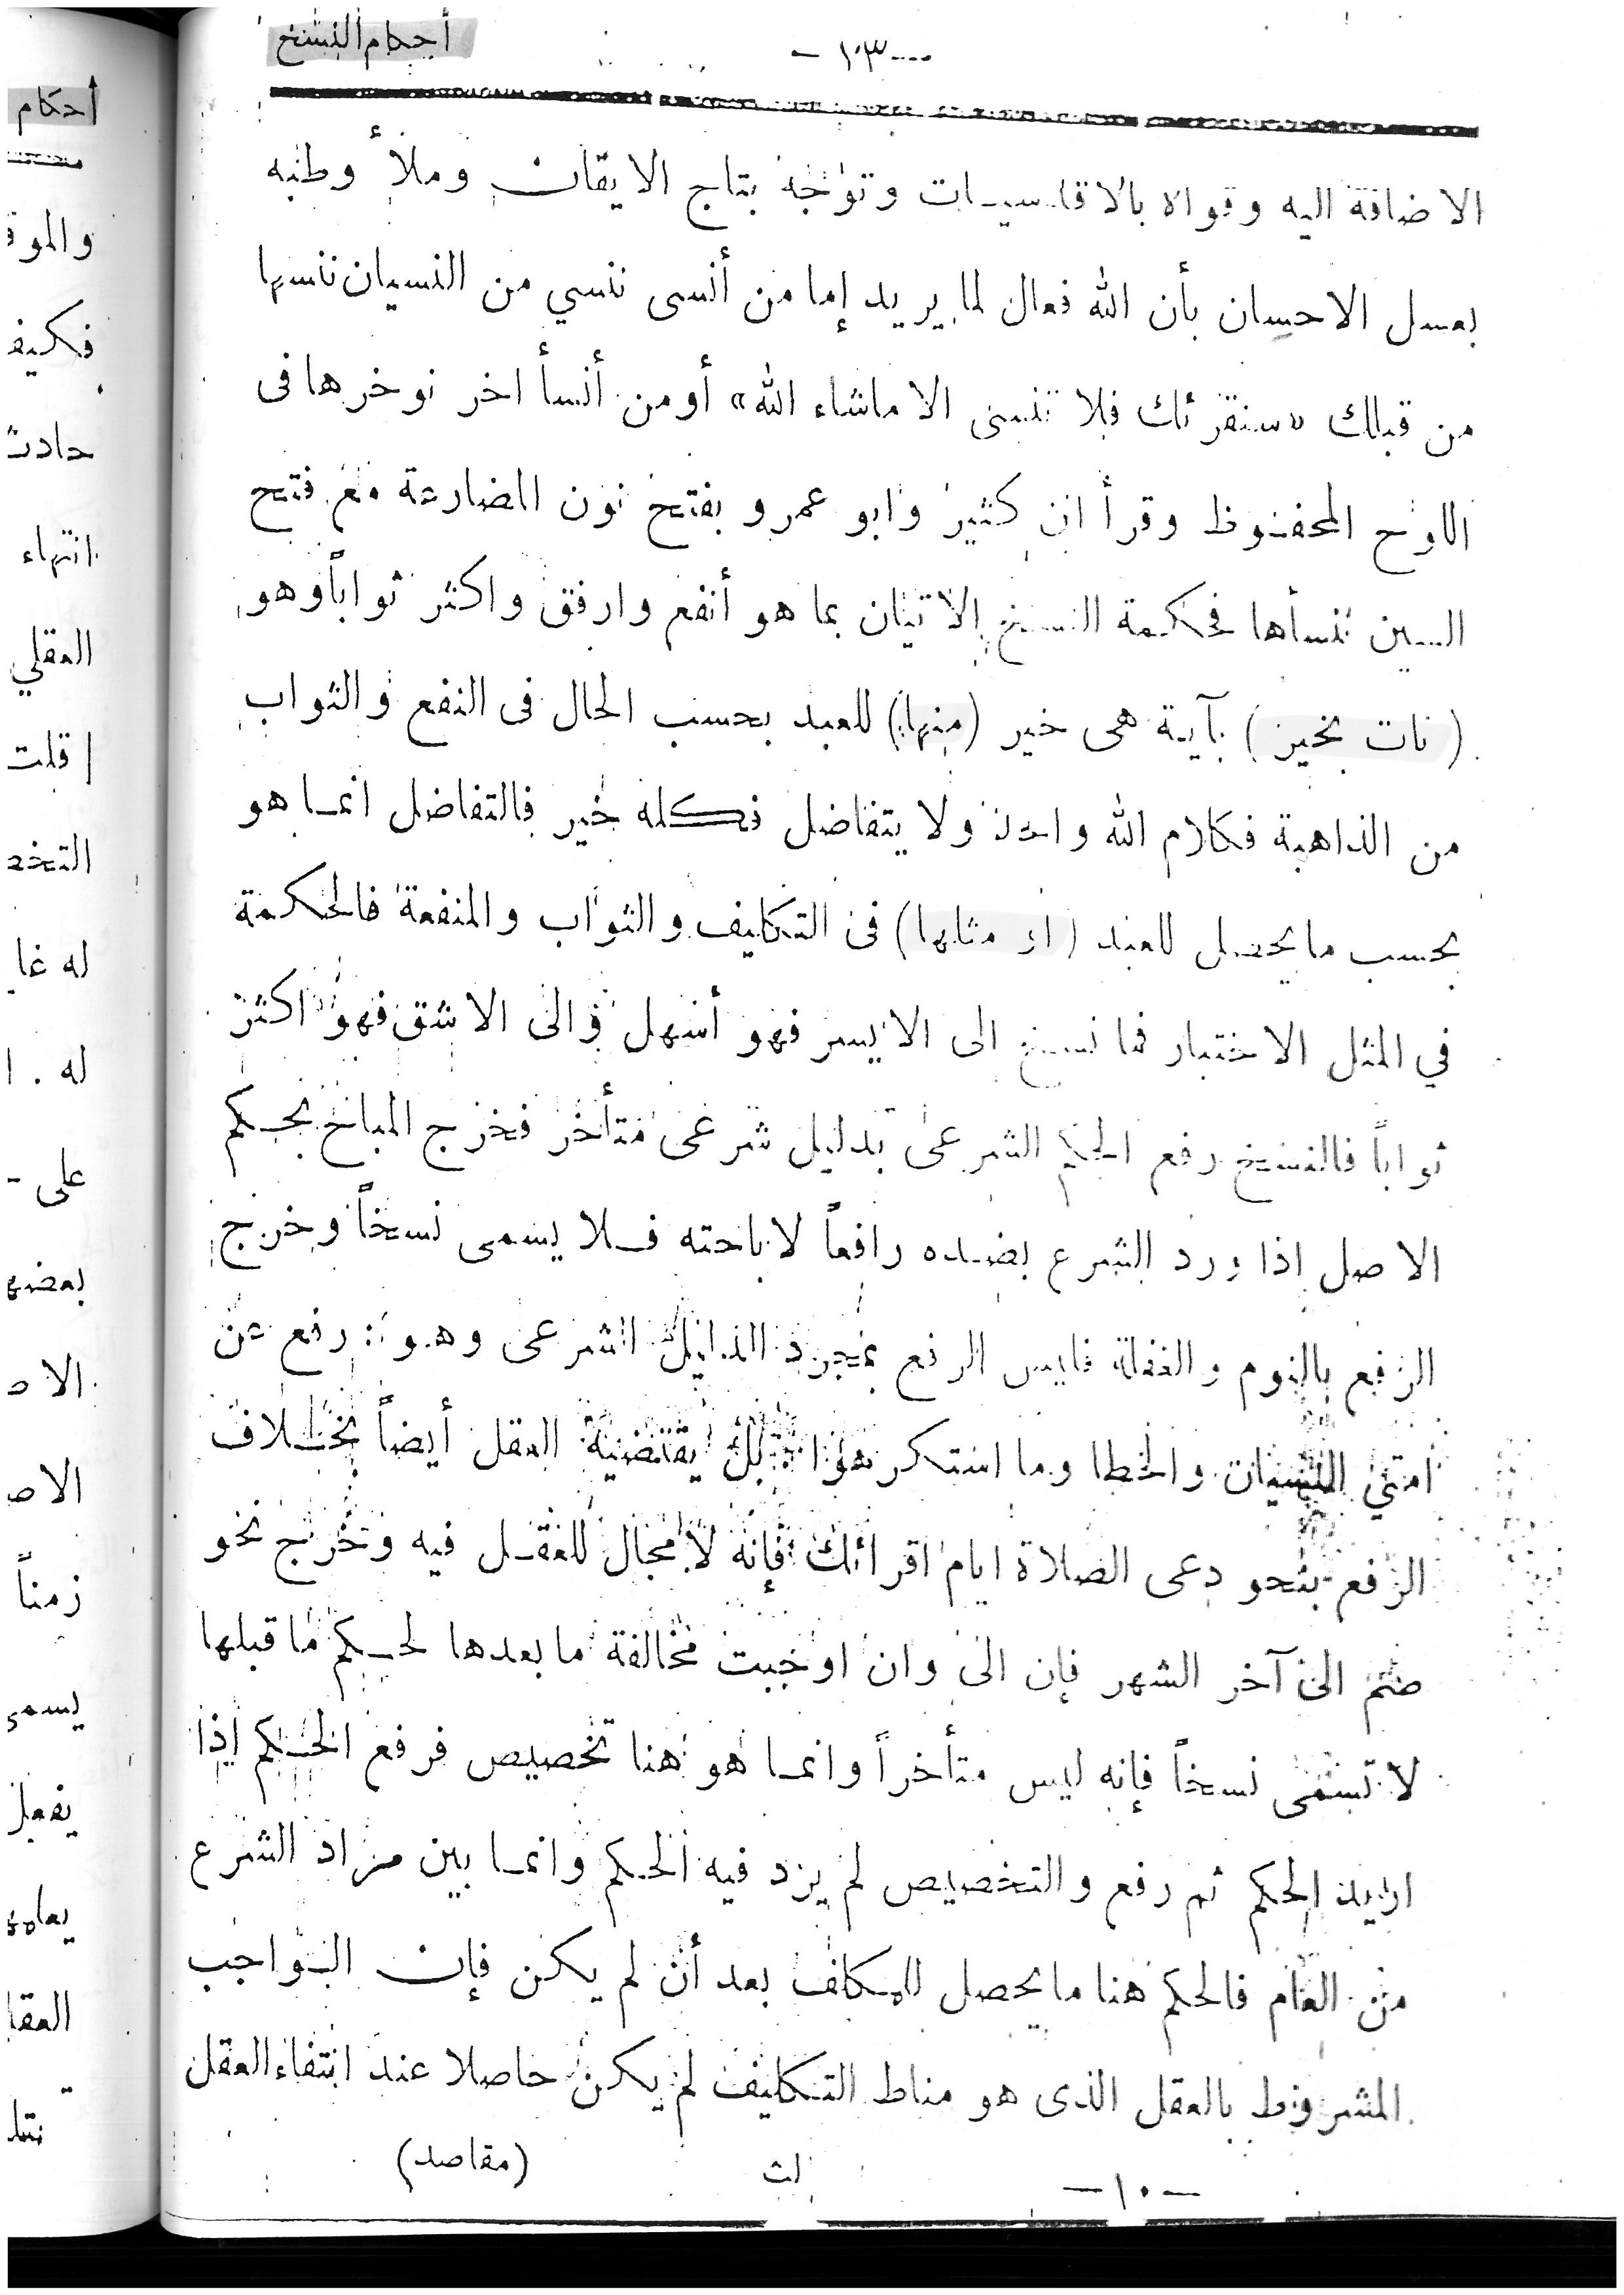 أحكام النسخ
— ١٠٣ —
الاضافة اليه وقواه بالاقاسيات وتوجه بتاج الايقان وملأ وطنبه
بعسل الاحسان بأن الله فعال لما يريد إما من أنسى ننسي من النسيان ننسها
من قبلك «سنقرئك فلا تنسى الا ماشاء الله» أو من أنسأ اخر نوخرها فى
اللوح المحفوظ وقرأ ابن كثير وابو عمرو بفتح نون المضارعة مع فتح
السين ننسأها فحكمة النسخ الاتيان بما هو أنفع وارفق واكثر ثواباً وهو
(نات بخير) بآية هى خير (منها) للعبد بحسب الحال فى النفع والثواب
من الذاهبة فكلام الله واحد ولا يتفاضل فكله خير فالتفاضل انما هو
بحسب ما يحصل للعبد (او مثلها) فى التكليف والثواب والمنفعة فالحكمة
في المثل الاختبار فما نسخ الى الايسر فهو أسهل والى الاشق فهو اكثر
ثواباً فالنسخ رفع الحكم الشرعى بدليل شرعى متأخر فخرج المباح بحكم
الاصل اذا ورد الشرع بضده رافعاً لاباحته فلا يسمى نسخاً وخرج
الرفع بالنوم والغفلة فليس الرفع بمجرد الدليل الشرعى وهو : رفع عن
امتي النسيان والخطا وما استكرهوا : بل يقتضيه العقل أيضاً بخلاف
الرفع بنحو دعى الصلاة ايام اقرائك فإنه لا مجال للعقل فيه وخرج نحو
صم الى آخر الشهر فإن الى وان اوجبت مخالفة ما بعدها لحكم ما قبلها
لا تسمى نسخاً فإنه ليس متأخراً وانما هو هنا تخصيص فرفع الحكم إذا
اريد الحكم ثم رفع والتخصيص لم يرد فيه الحكم وانما بين مراد الشرع
من العام فالحكم هنا ما يحصل للمكلف بعد أن لم يكن فإن الواجب
المشروط بالعقل الذى هو مناط التكليف لم يكن حاصلا عند انتفاء العقل
— ١٠ — لث (مقاصد)
أحكام
فكيف
انتهاء
العقلي
قلت
له
على
زمناً